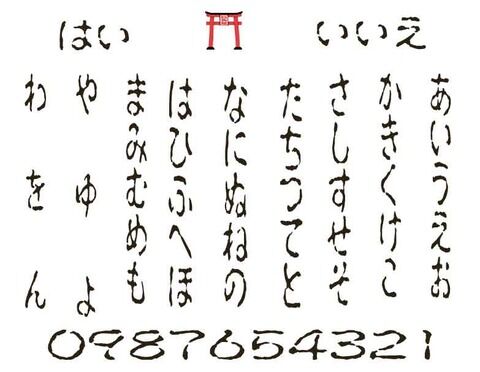 はい いいえ
あいうえお
かきくけこ
さしすせそ
たちつてと
なにぬねの
はひふへほ
まみむめも
や ゆ よ
わ を ん
0987654321